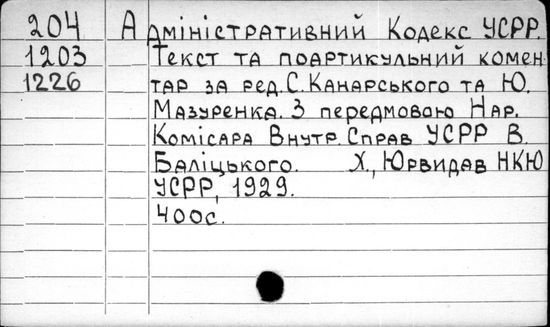 204 Адміністративний Кодекс УСРР.
1203 Текст та поартикульний комен
1226 тар за ред. С. Канарського та Ю.
Мазуренка. З передмовою Нар.
Комісара Внутр. Справ УСРР В.
Баліцького. Х., Юрвидав НКЮ
УСРР, 1929.
400с.